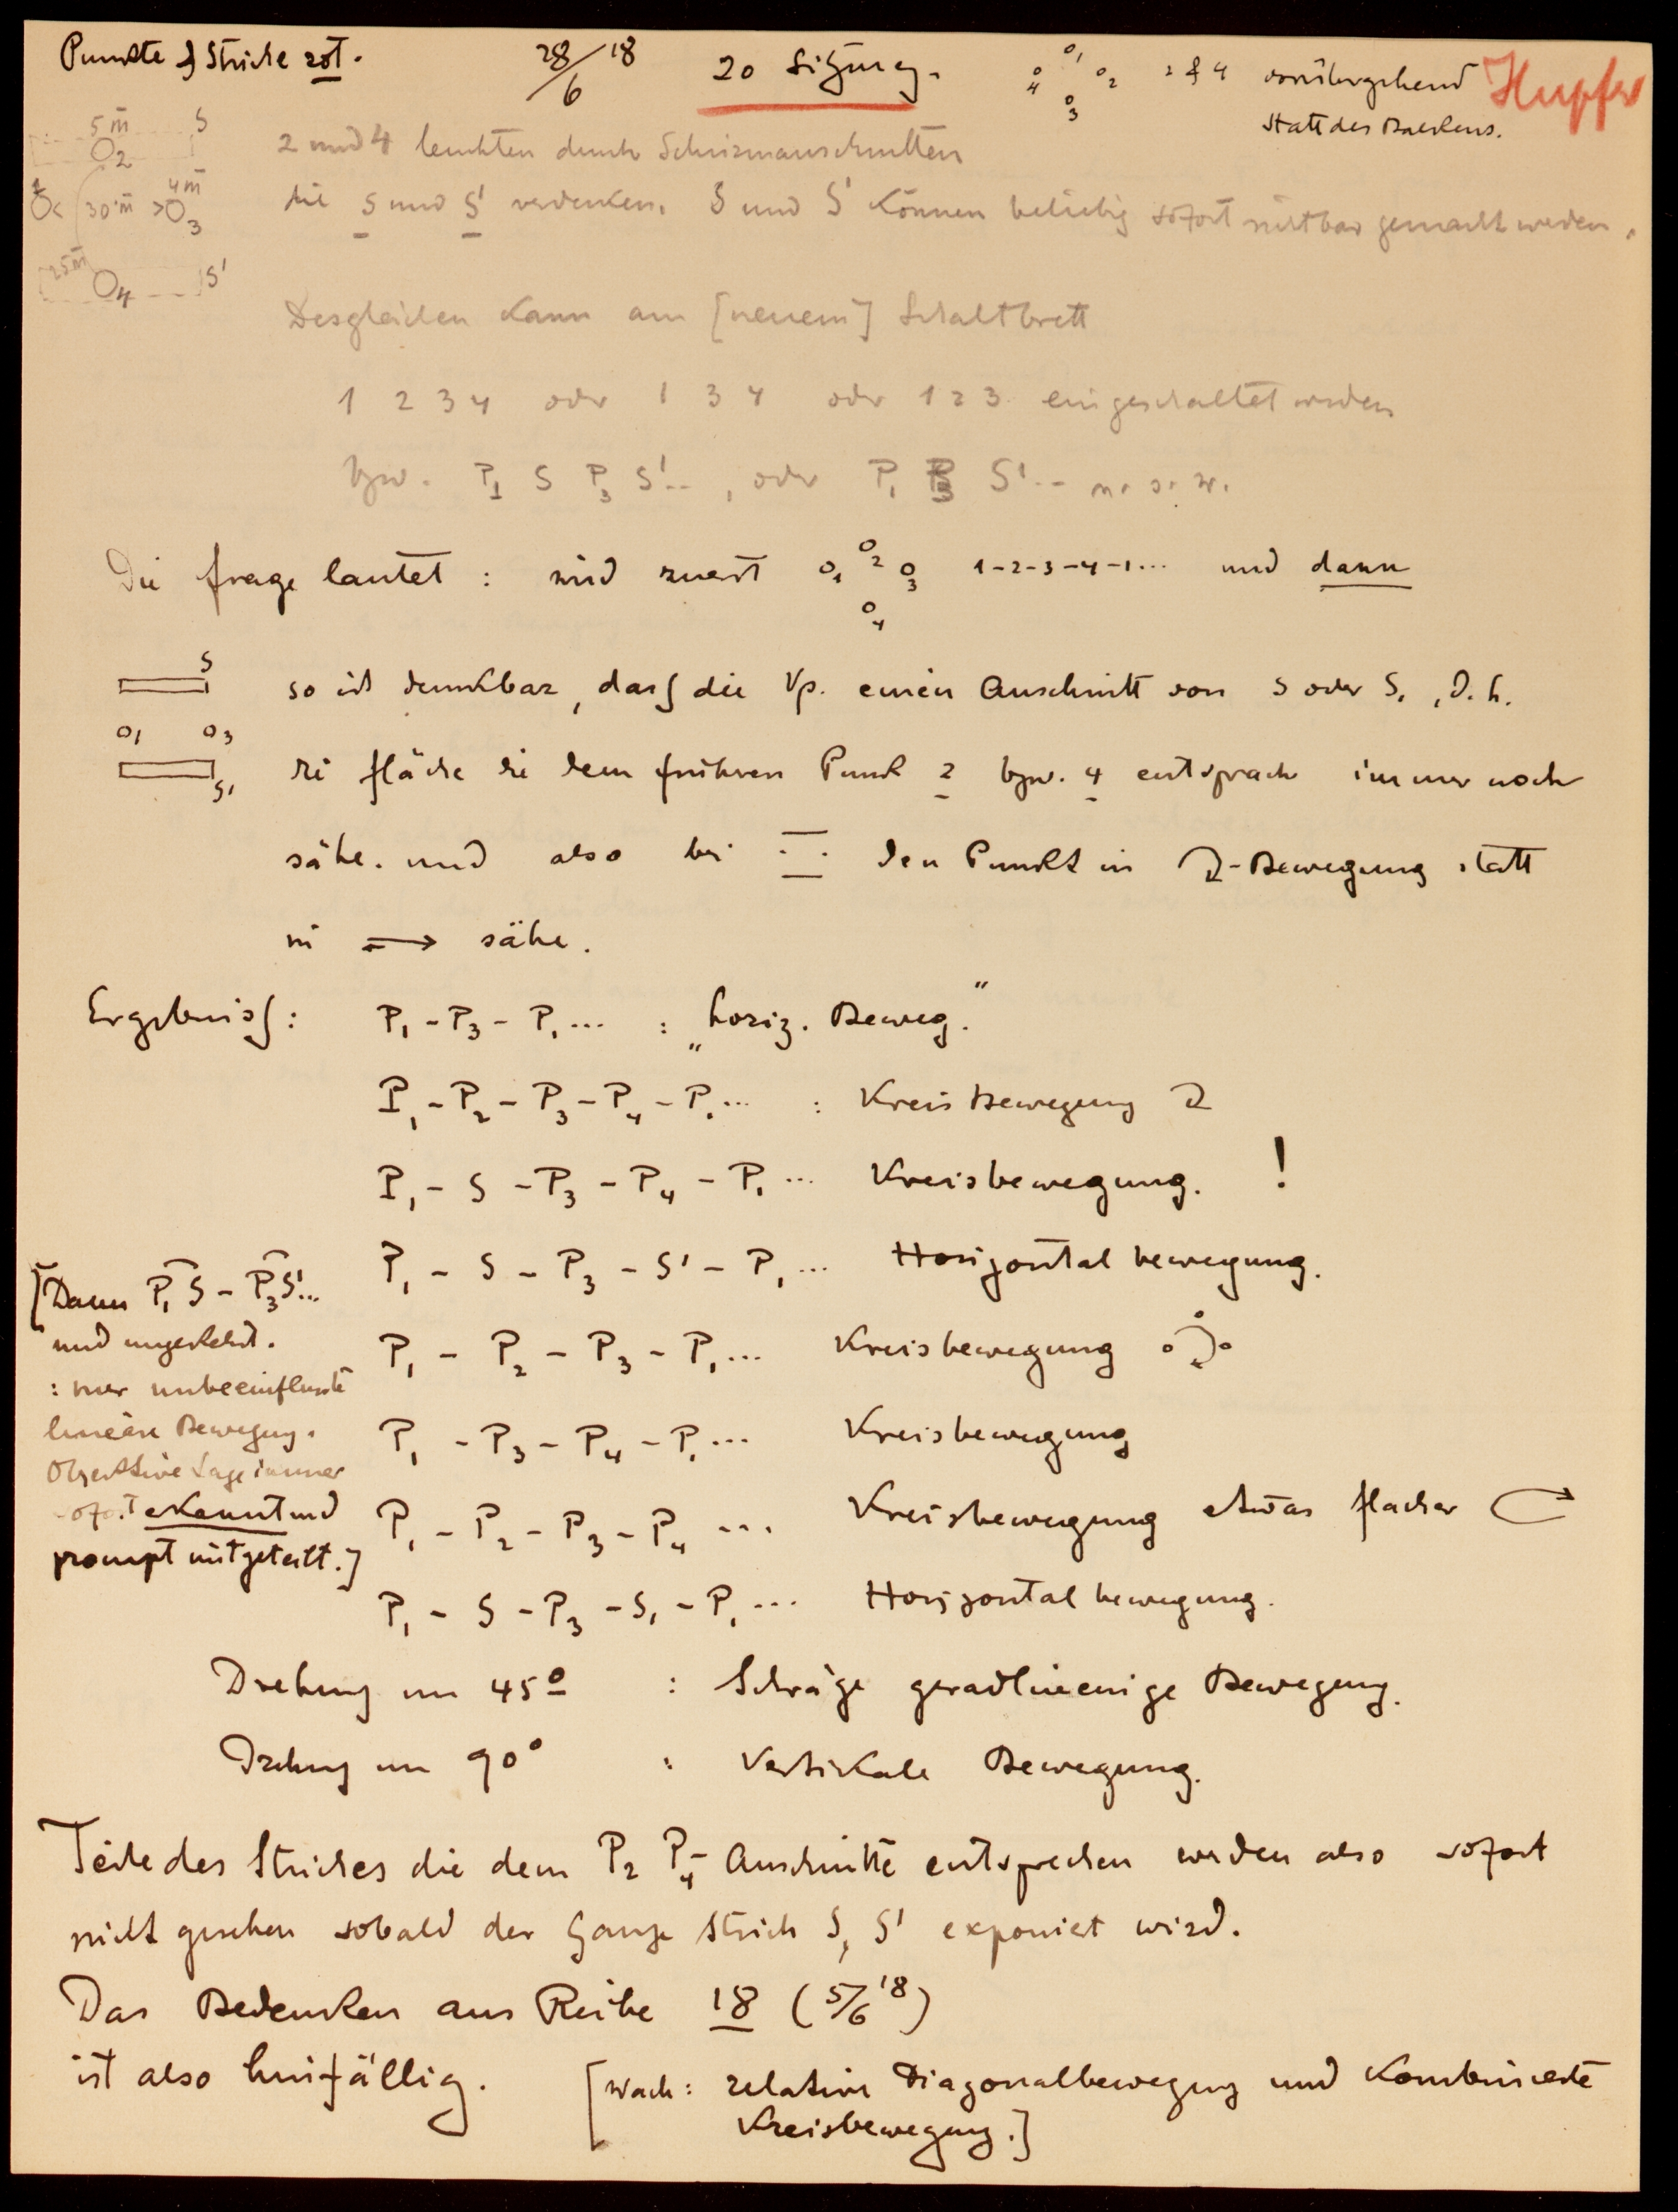 Punkte & Striche rot.
28/6 18
20 Sitzung.
2 & 4 vorübergehend
statt des Balkens.
Hupfer
1
4 2
3
5 m S
2
1 30 m 4 m
3
25 m
4 S'
2 und 4 leuchten durch Schirmausschnitten
die S und S' verdecken. S und S' können beliebig sofort sichtbar gemacht werden.
Desgleichen kann am [neuem] Schaltbrett
1 2 3 4 oder 1 3 4 oder 1 2 3 eingeschaltet werden
bzw. P1 S P3 S'.., oder P1 P3 S'.. u. s. w.
Die Frage lautet : wird zuerst 1 2 3 4 1-2-3-4-1... und dann
S
O1 O3
S1
so ist denkbar, dass die Vp. einen Auschnitt von S oder S1, d. h.
die Fläche die dem frühren Punkt 2 bzw. 4 entsprach immer noch
sähe. und also bei den Punkt in -Bewegung statt
in ⟷ sähe.
Ergebniss: P1 - P3 - P1 ... : „horiz. Beweg.“
P1 - P2 - P3 - P4 - P1 ... : Kreisbewegung
P1 - S - P3 - P4 - P1 ... Kreisbewegung. !
P1 - S - P3 - S' - P1 ... Horizontalbewegung.
P1 - P2 - P3 - P1 ... Kreisbewegung
P1 - P3 - P4 - P1 ... Kreisbewegung
P1 - P2 - P3 - P4 ... Kreisbewegung etwas flacher
P1 - S - P3 - S1 - P1 ... Horizontalbewegung.
[Dann P1 S - P3 S'...
und umgekehrt.
: nur unbeeinflusste
lineäre Bewegung.
Objektive Lage immer
sofort erkannt und
prompt mitgeteilt.]
Drehung um 45° : Schräge geradlinienige Bewegung.
Drehung um 90° : Vertikale Bewegung.
Teile des Striches die dem P2 P4- Auschnitte entsprechen werden also sofort
nicht gesehen sobald der Ganze Strich S, S' exponiert wird.
Das Bedenken aus Reihe 18 (5/6 18)
ist also hinfällig.
[Nach: relative Diagonalbewegung und Kombinierte
Kreisbewegung.]